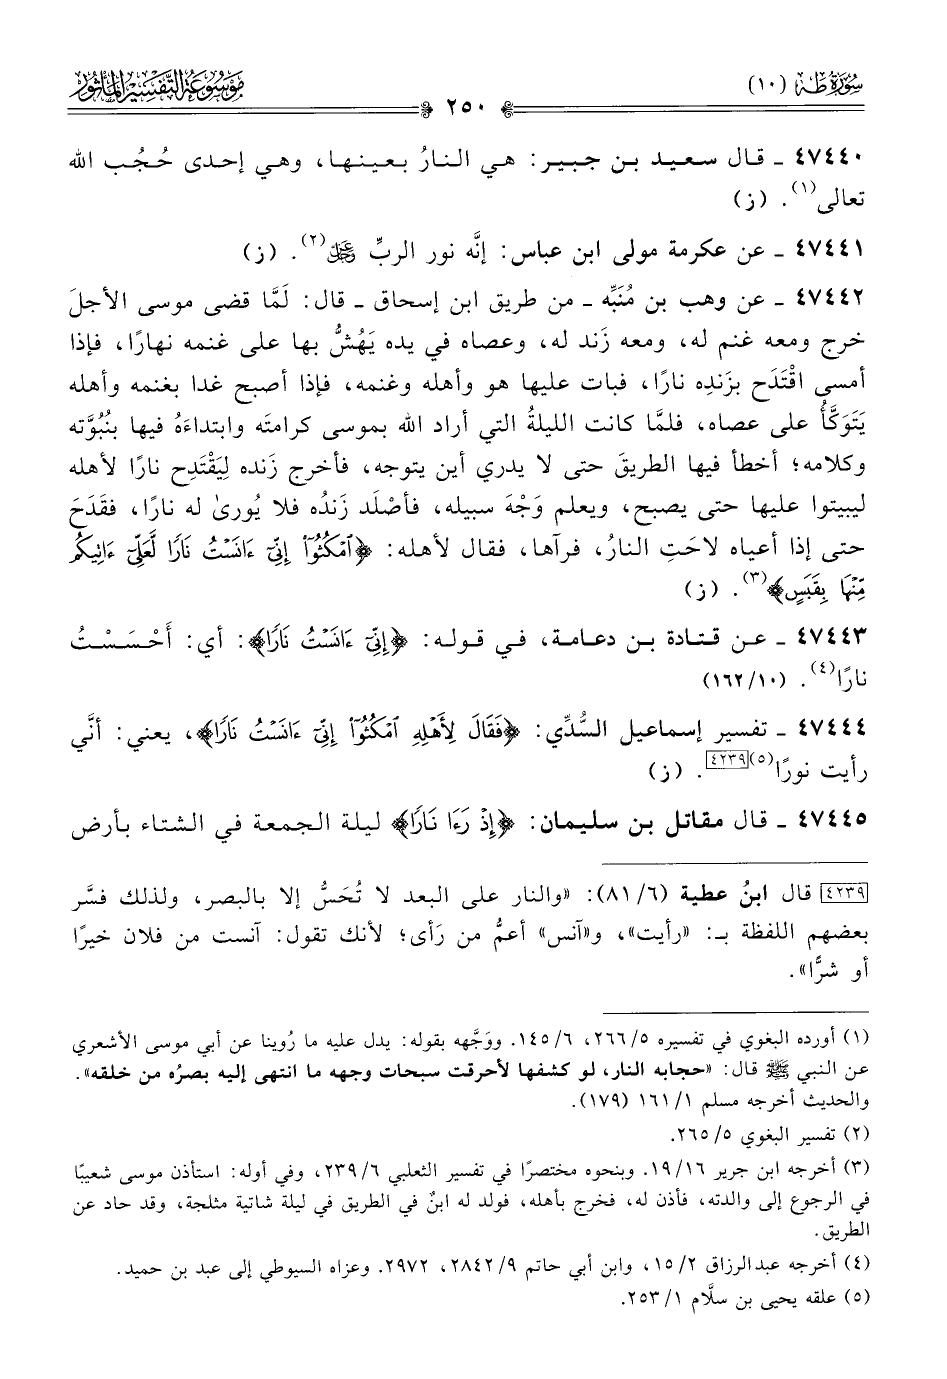 سُورَةُ طٰه (١٠)
موسُوعَة التَّفسِير المَأثُور
٢٥٠
٤٧٤٤٠ ـ قال سعيد بن جبير: هي النارُ بعينها، وهي إحدى حُجُب الله
تعالى(١). (ز)
٤٧٤٤١ ـ عن عكرمة مولى ابن عباس: إنَّه نور الربِّ ﷿(٢). (ز)
٤٧٤٤٢ ـ عن وهب بن مُنَبِّه ـ من طريق ابن إسحاق ـ قال: لَمَّا قضى موسى الأجلَ
خرج ومعه غنم له، ومعه زَند له، وعصاه في يده يَهُشُّ بها على غنمه نهارًا، فإذا
أمسى اقْتَدَح بزَندِه نارًا، فبات عليها هو وأهله وغنمه، فإذا أصبح غدا بغنمه وأهله
يَتَوَكَّأُ على عصاه، فلمَّا كانت الليلةُ التي أراد الله بموسى كرامتَه وابتداءَهُ فيها بنُبُوَّته
وكلامه؛ أخطأ فيها الطريقَ حتى لا يدري أين يتوجه، فأخرج زَنده لِيَقْتَدِح نارًا لأهله
ليبيتوا عليها حتى يصبح، ويعلم وَجْهَ سبيله، فأصْلَد زَندُه فلا يُورىٰ له نارًا، فقَدَحَ
حتى إذا أعياه لاحَتِ النارُ، فرآها، فقال لأهله: ﴿ٱمۡكُثُوٓاْ إِنِّيٓ ءَانَسۡتُ نَارٗا لَّعَلِّيٓ ءَاتِيكُم
مِّنۡهَا بِقَبَسٍ﴾(٣). (ز)
٤٧٤٤٣ ـ عن قتادة بن دعامة، في قوله: ﴿إِنِّيٓ ءَانَسۡتُ نَارٗا﴾: أي: أَحْسَسْتُ
نارًا(٤). (١٠/١٦٢)
٤٧٤٤٤ ـ تفسير إسماعيل السُّدِّي: ﴿فَقَالَ لِأَهۡلِهِ ٱمۡكُثُوٓاْ إِنِّيٓ ءَانَسۡتُ نَارٗا﴾، يعني: أنَّي
رأيت نورًا(٥)[٤٢٣٩]. (ز)
٤٧٤٤٥ ـ قال مقاتل بن سليمان: ﴿إِذۡ رَءَا نَارٗا﴾ ليلة الجمعة في الشتاء بأرض
[٤٢٣٩] قال ابنُ عطية (٦/٨١): «والنار على البعد لا تُحَسُّ إلا بالبصر، ولذلك فسَّر
بعضهم اللفظة بـ: «رأيت»، و«آنس» أعمُّ من رَأى؛ لأنك تقول: آنست من فلان خيرًا
أو شرًّا».
(١) أورده البغوي في تفسيره ٥/٢٦٦، ٦/١٤٥. ووَجَّهه بقوله: يدل عليه ما رُوينا عن أبي موسى الأشعري
عن النبي ﷺ قال: «حجابه النار، لو كشفها لأحرقت سبحات وجهه ما انتهى إليه بصرُه من خلقه».
والحديث أخرجه مسلم ١/١٦١ (١٧٩).
(٢) تفسير البغوي ٥/٢٦٥.
(٣) أخرجه ابن جرير ١٦/١٩. وبنحوه مختصرًا في تفسير الثعلبي ٦/٢٣٩، وفي أوله: استأذن موسى شعيبًا
في الرجوع إلى والدته، فأذن له، فخرج بأهله، فولد له ابنٌ في الطريق في ليلة شاتية مثلجة، وقد حاد عن
الطريق.
(٤) أخرجه عبدالرزاق ٢/١٥، وابن أبي حاتم ٩/٢٨٤٢، ٢٩٧٢. وعزاه السيوطي إلى عبد بن حميد.
(٥) علقه يحيى بن سلَّام ١/٢٥٣.